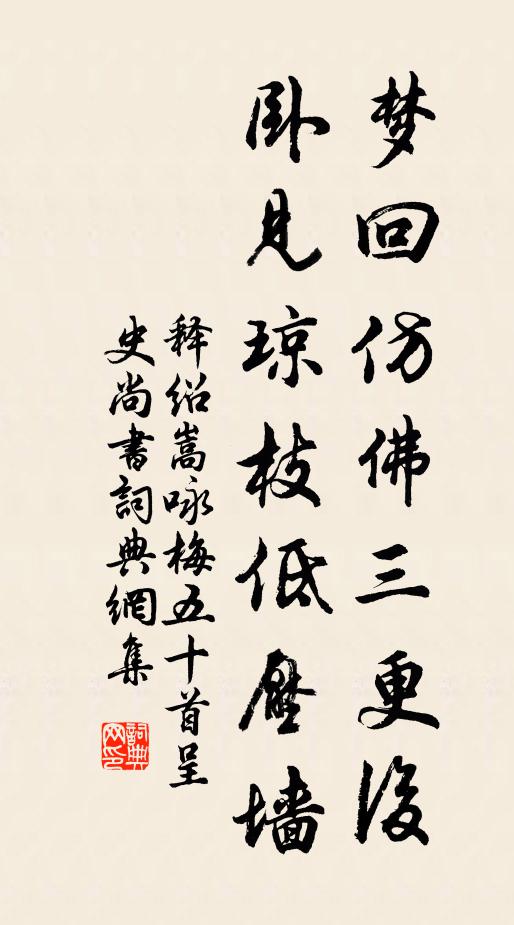 梦回仿佛三更後
卧见琼枝低壓墙
释绍嵩咏梅五十首呈
史尚書詞典網集
詞典网印